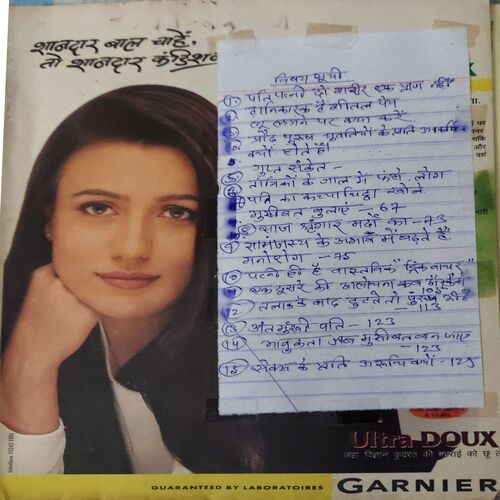 शानदार बाल चाहें,
तो शानदार कंडिश
विषय सूची
① पति पत्नी दो शरीर एक प्राण नहीं
② हानिकारक है शीतल पेय
लू लगने पर क्या करें
प्रौढ़ पुरुष युवतियों के प्रति आकर्षित
क्यों होते हैं।
⑤ गुप्त संकेत -
⑥ तांत्रिकों के जाल में फंसे लोग
पति का कच्चा चिट्ठा खोले
मुसीबत बुलाएं - 67
⑧ साज श्रृंगार मर्दों का - 73
⑨ सामंजस्य के अभाव में बढ़ते हैं
मनोरोग - 75
⑩ पत्नी ही है वास्तविक
एक दूसरे की आलोचना कब हो कैसे
- 105
⑫ तलाक के बाद टूटते तो पुरुष भी हैं
- 113
⑬ अंतर्मुखी पति - 123
⑭ भावुकता जब मुसीबत बन जाए
- 123
⑮ सेक्स के प्रति अरुचि क्यों - 129
Ultra DOUX
जहां विज्ञान कुदरत की गहराई को छू ले
GUARANTEED BY LABORATOIRES GARNIER